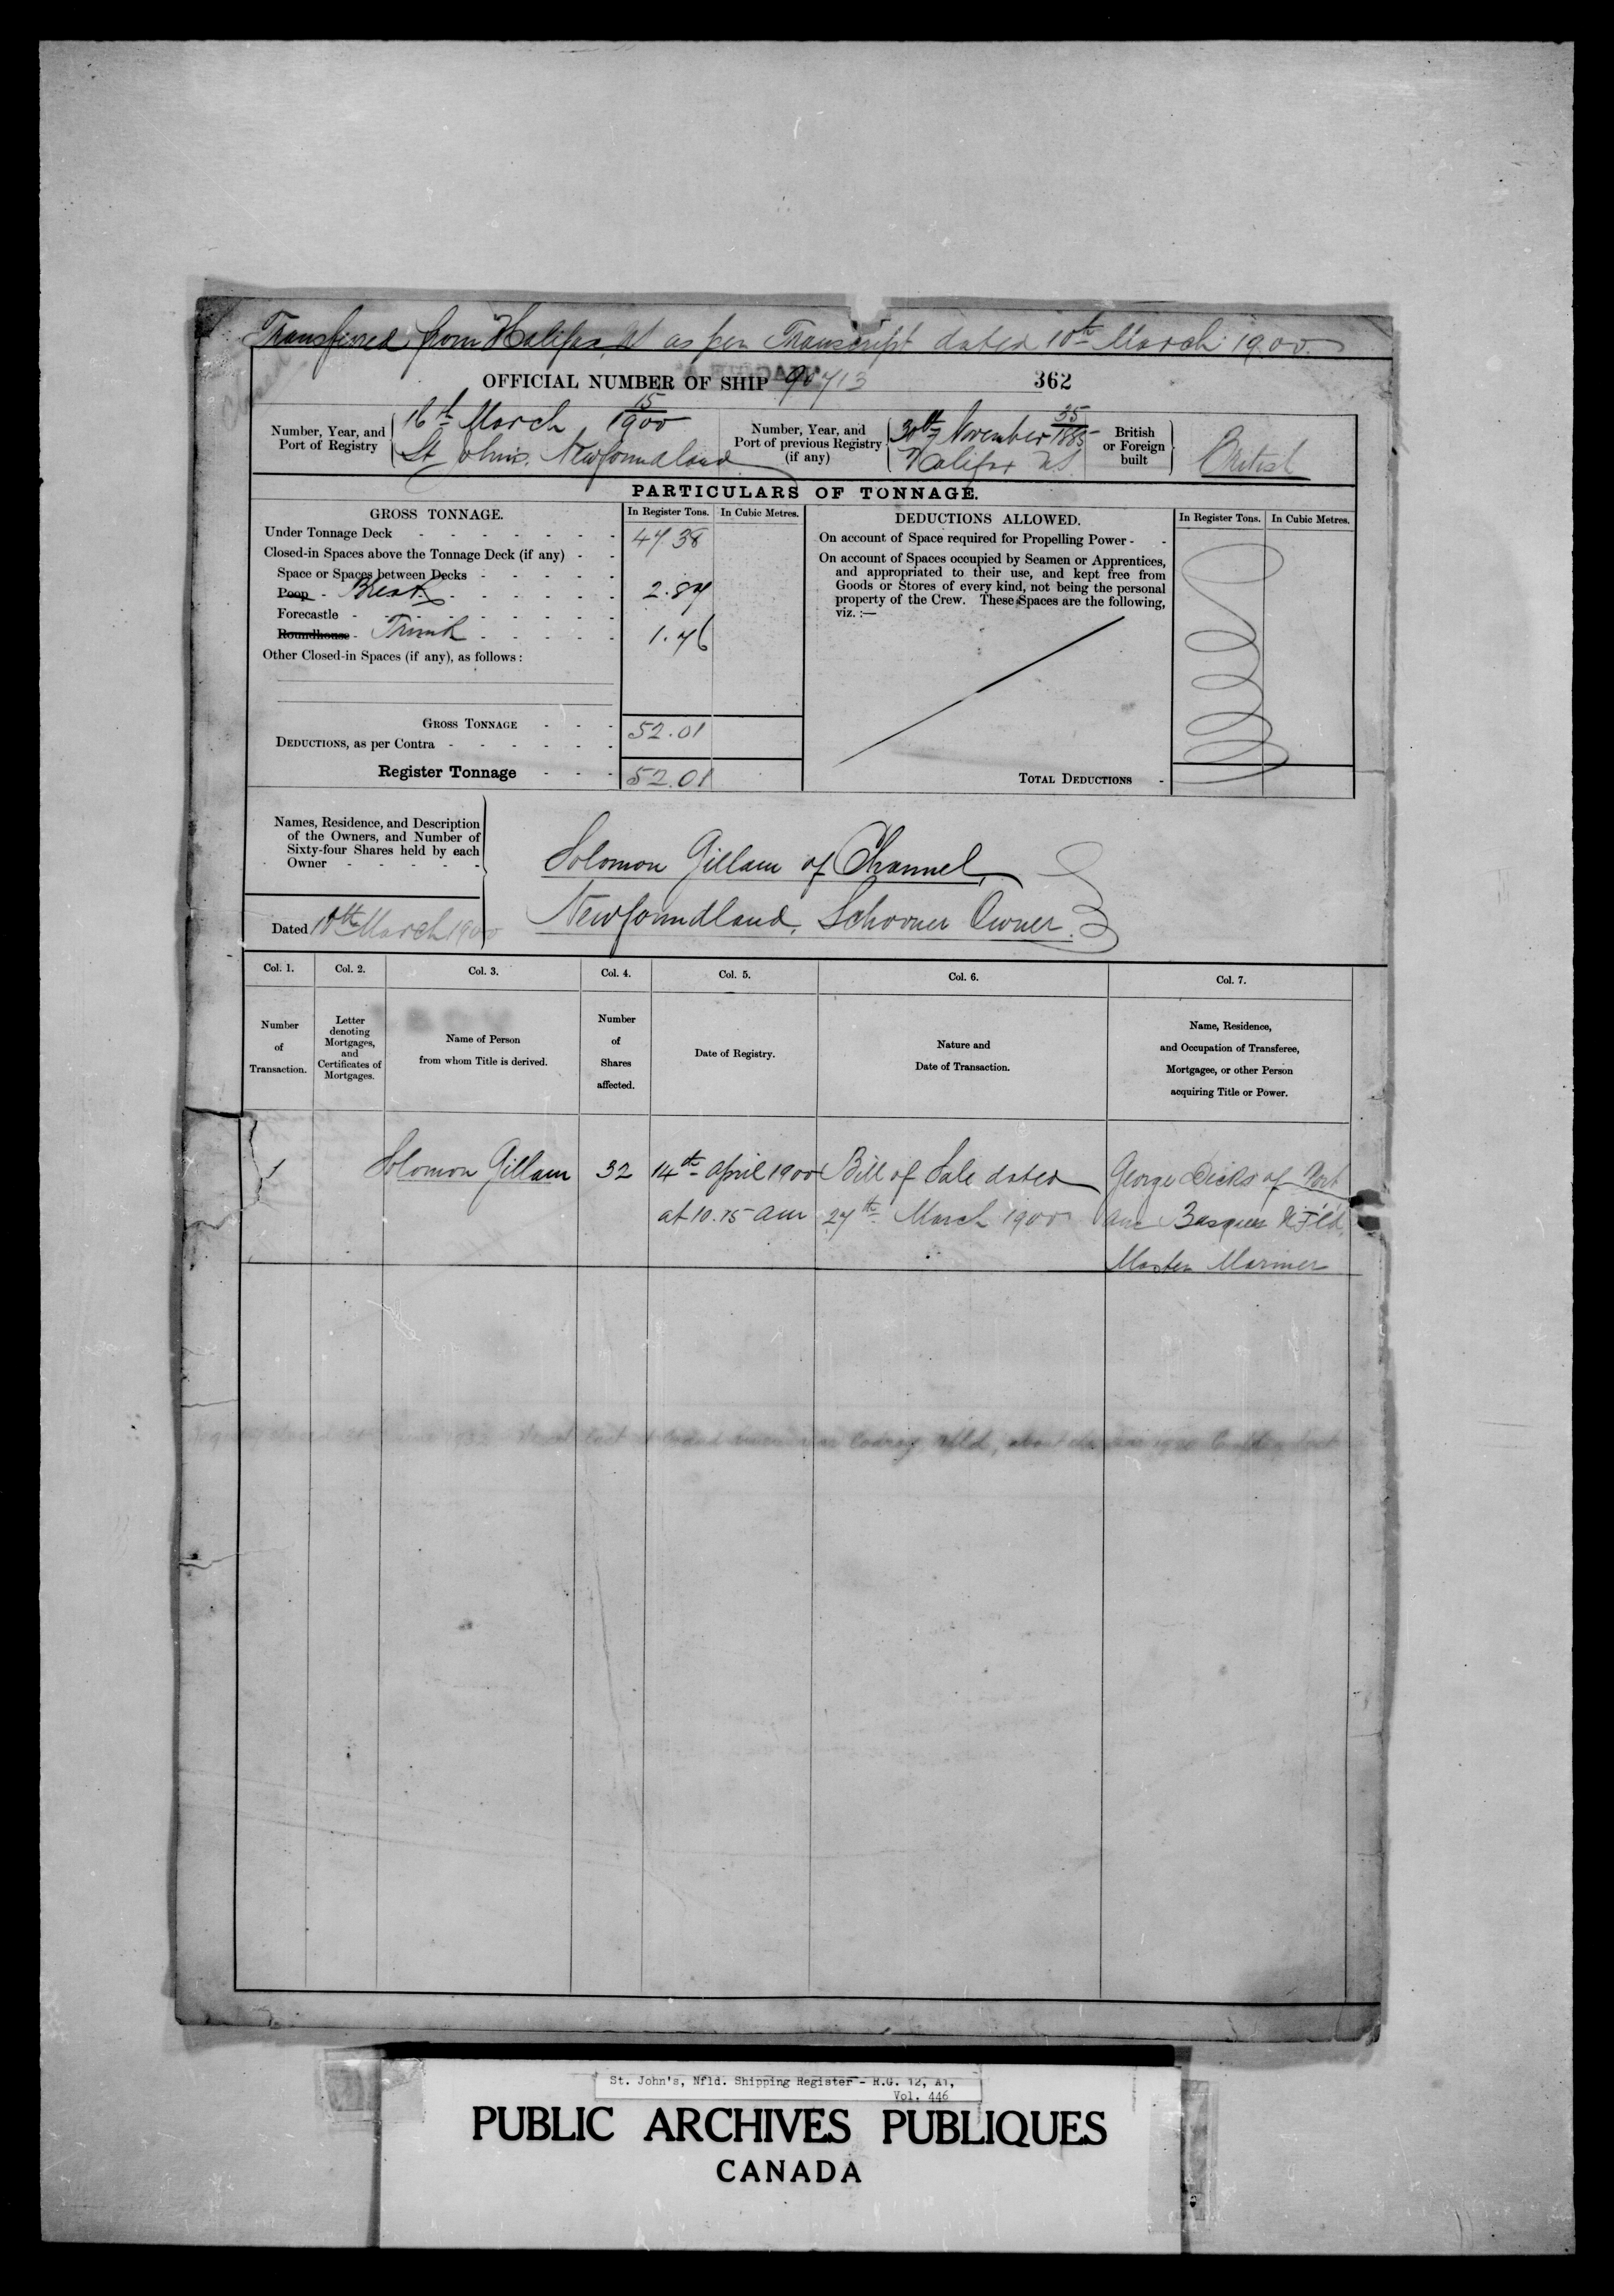 Transferred from Halifax NS as per Transcript dated 10th March 1900.
OFFICIAL NUMBER OF SHIP 90713 362
Number, Year, and Port of Registry
16th March 15/1900
St Johns. Newfoundland
Number, Year, and Port of previous Registry (if any)
30th November 35/1885
Halifax NS
British or Foreign built
British
PARTICULARS OF TONNAGE.
GROSS TONNAGE. In Register Tons. In Cubic Metres.
Under Tonnage Deck - - - - - - - 47.38
Closed-in Spaces above the Tonnage Deck (if any) - -
Space or Spaces between Decks - - - - -
Poop - Break - - - - - - 2.87
Forecastle - - - - - -
Roundhouse - Trunk - - - - - 1.76
Other Closed-in Spaces (if any), as follows:
GROSS TONNAGE - - - 52.01
DEDUCTIONS, as per Contra - - - - - -
Register Tonnage - - - 52.01
DEDUCTIONS ALLOWED. In Register Tons. In Cubic Metres.
On account of Space required for Propelling Power - -
On account of Spaces occupied by Seamen or Apprentices,
and appropriated to their use, and kept free from
Goods or Stores of every kind, not being the personal
property of the Crew. These Spaces are the following,
viz. :—
TOTAL DEDUCTIONS -
Names, Residence, and Description
of the Owners, and Number of
Sixty-four Shares held by each
Owner - - - - -
Dated 10th March 1900
Solomon Gillam of Channel,
Newfoundland. Schooner Owner.
Col. 1. Col. 2. Col. 3. Col. 4. Col. 5. Col. 6. Col. 7.
Number of Transaction.
Letter denoting Mortgages, and Certificates of Mortgages.
Name of Person from whom Title is derived.
Number of Shares affected.
Date of Registry.
Nature and Date of Transaction.
Name, Residence, and Occupation of Transferee, Mortgagee, or other Person acquiring Title or Power.
1 Solomon Gillam 32 14th April 1900 Bill of Sale dated George Dicks of Port
at 10.15 am 27th March 1900 aux Basques N.F'ld.
Master Mariner
St. John's, Nfld. Shipping Register - R.G. 12, A1,
Vol. 446
PUBLIC ARCHIVES PUBLIQUES
CANADA